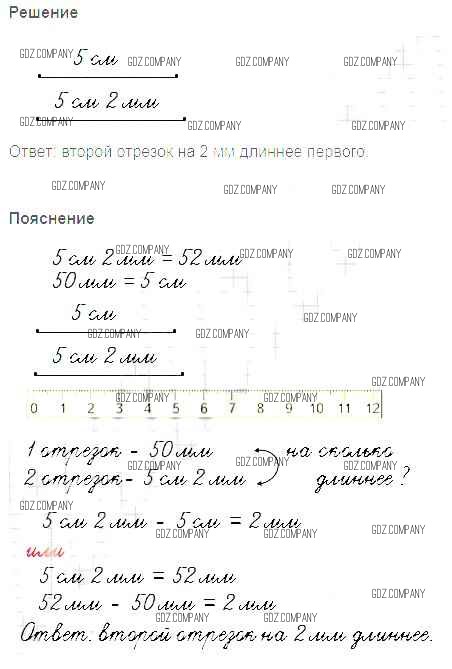 Решение
GDZ.COMPANY 5 см GDZ.COMPANY GDZ.COMPANY GDZ.COMPANY
5 см 2 мм
GDZ.COMPANY GDZ.COMPANY GDZ.COMPANY
Ответ: второй отрезок на 2 мм длиннее первого.
GDZ.COMPANY GDZ.COMPANY GDZ.COMPANY
Пояснение
GDZ.COMPANY GDZ.COMPANY GDZ.COMPANY
5 см 2 мм = 52 мм
50 мм = 5 см
5 см GDZ.COMPANY
GDZ.COMPANY GDZ.COMPANY
5 см 2 мм
GDZ.COMPANY
GDZ.COMPANY GDZ.COMPANY
0 1 2 3 4 5 6 7 8 9 10 11 12
1 отрезок - 50 мм на сколько
GDZ.COMPANY GDZ.COMPANY GDZ.COMPANY
2 отрезок - 5 см 2 мм длиннее?
GDZ.COMPANY GDZ.COMPANY GDZ.COMPANY
5 см 2 мм - 5 см = 2 мм
GDZ.COMPANY GDZ.COMPANY GDZ.COMPANY
или
5 см 2 мм = 52 мм
GDZ.COMPANY
52 мм - 50 мм = 2 мм
GDZ.COMPANY GDZ.COMPANY
Ответ. второй отрезок на 2 мм длиннее.
GDZ.COMPANY